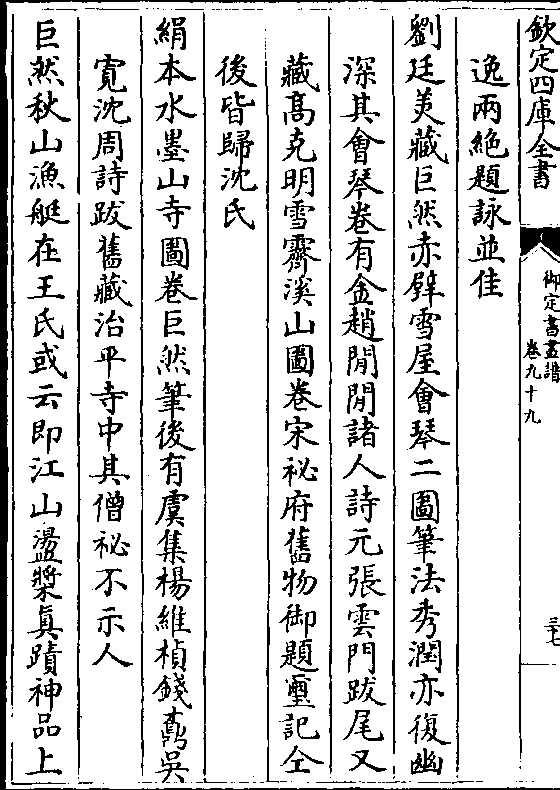 欽定四庫全書
御定書畫譜
卷九十九
三七
逸兩絶題詠並佳
劉廷美藏巨然赤壁雪屋會琴二圖筆法秀潤亦復幽
深其會琴卷有金趙閒閒諸人詩元張雲門跋尾又
藏髙克明雪霽溪山圖卷宋祕府舊物御題璽記仝
後皆歸沈氏
絹本水墨山寺圖卷巨然筆後有虞集楊維楨錢鼒吳
寛沈周詩跋舊藏治平寺中其僧祕不示人
巨然秋山漁艇在王氏或云即江山盪槳真蹟神品上